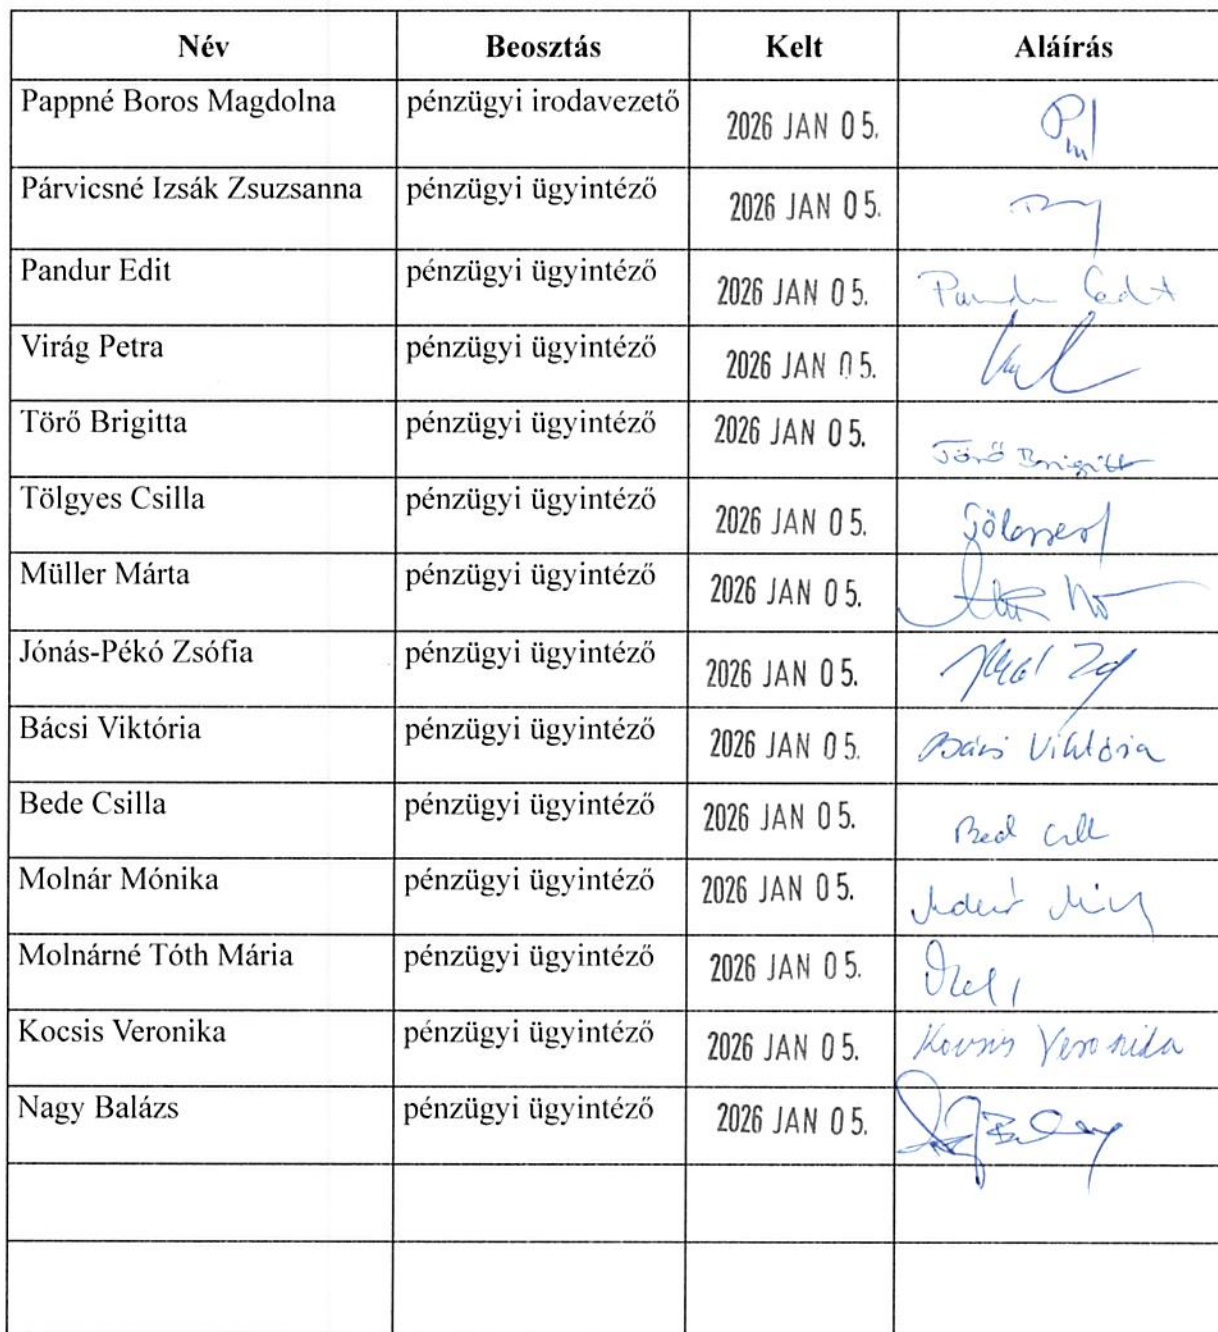 Név Beosztás Kelt Aláírás
Pappné Boros Magdolna pénzügyi irodavezető 2026 JAN 05.
Párvicsné Izsák Zsuzsanna pénzügyi ügyintéző 2026 JAN 05.
Pandur Edit pénzügyi ügyintéző 2026 JAN 05.
Virág Petra pénzügyi ügyintéző 2026 JAN 05.
Törő Brigitta pénzügyi ügyintéző 2026 JAN 05. Törő Brigitt
Tölgyes Csilla pénzügyi ügyintéző 2026 JAN 05.
Müller Márta pénzügyi ügyintéző 2026 JAN 05.
Jónás-Pékó Zsófia pénzügyi ügyintéző 2026 JAN 05.
Bácsi Viktória pénzügyi ügyintéző 2026 JAN 05. Bácsi Viktória
Bede Csilla pénzügyi ügyintéző 2026 JAN 05.
Molnár Mónika pénzügyi ügyintéző 2026 JAN 05.
Molnárné Tóth Mária pénzügyi ügyintéző 2026 JAN 05.
Kocsis Veronika pénzügyi ügyintéző 2026 JAN 05. Kocsis Veronika
Nagy Balázs pénzügyi ügyintéző 2026 JAN 05.